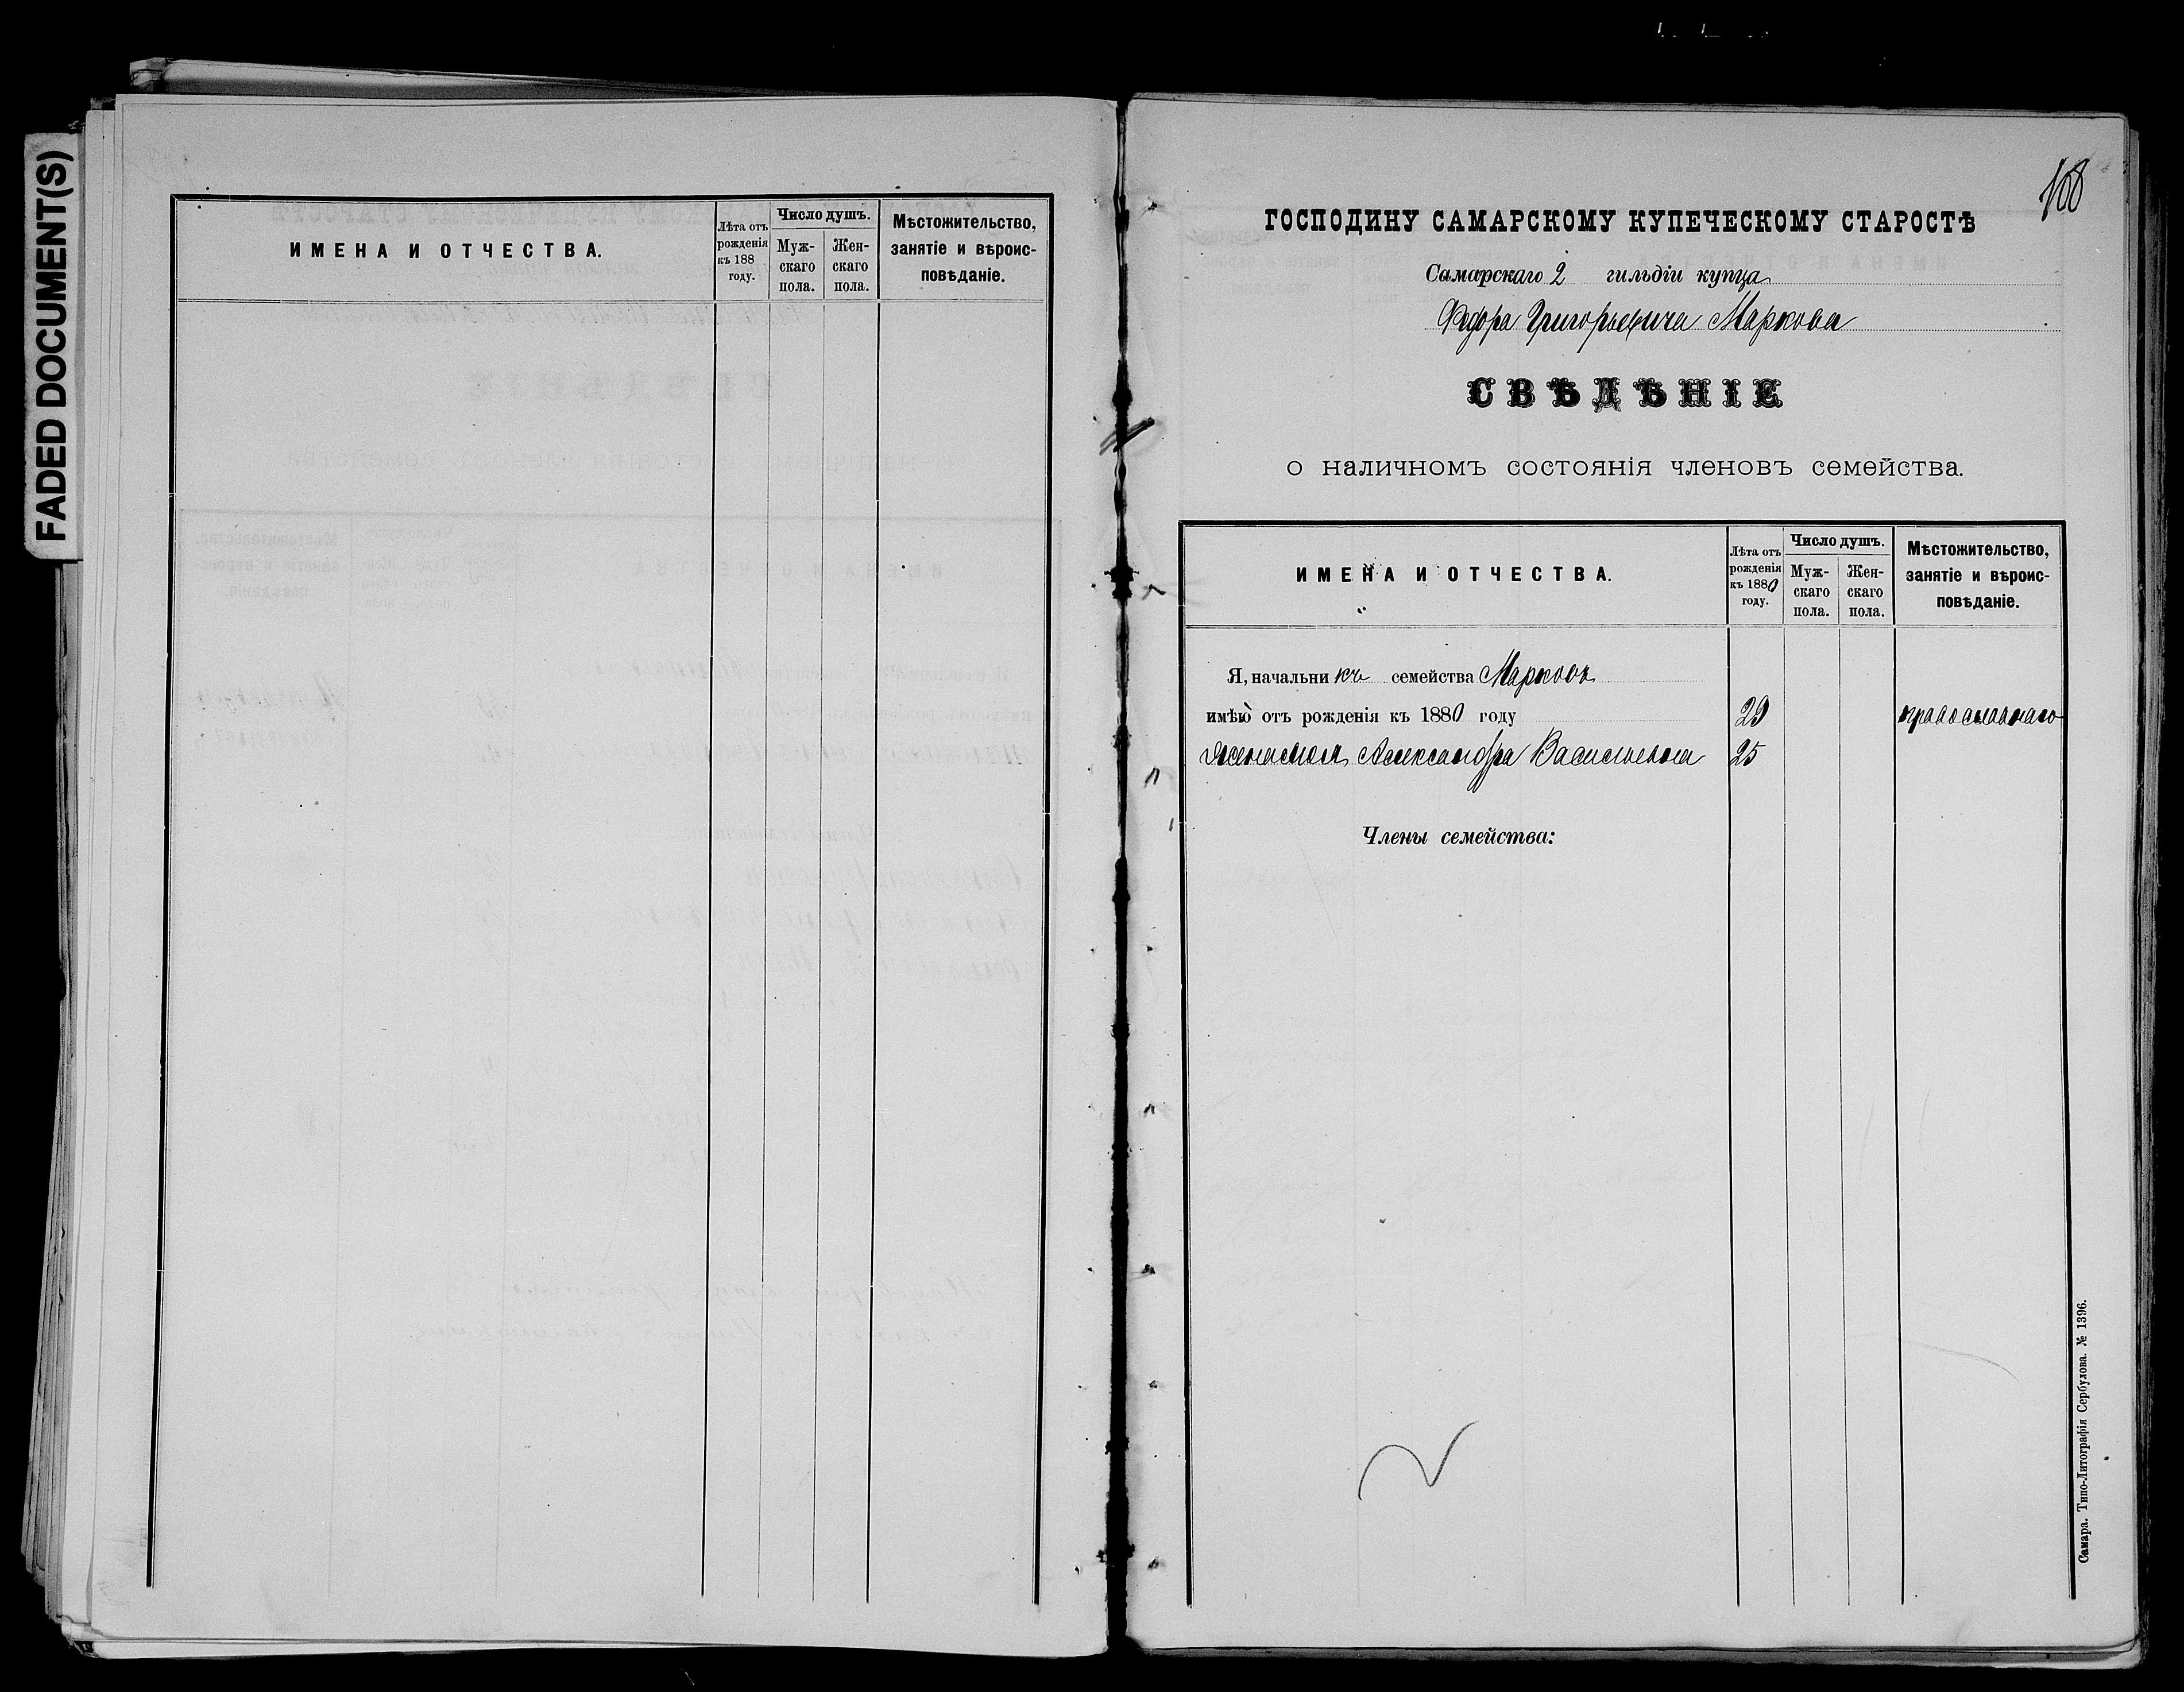 FADED DOCUMENT(S)
ИМЕНА И ОТЧЕСТВА.
Лѣта отъ рожденія къ 188 году.
Число душъ.
Муж-скаго пола.
Жен-скаго пола.
Мѣстожительство, занятіе и вѣроис-повѣданіе.
168
ГОСПОДИНУ САМАРСКОМУ КУПЕЧЕСКОМУ СТАРОСТѢ
Самарскаго 2 гильдіи купца
Федора Григорьевича Маркова
СВѢДѢНІЕ
о наличномъ состоянія членовъ семейства.
ИМЕНА И ОТЧЕСТВА.
Лѣта отъ рожденія къ 1880 году.
Число душъ.
Муж-скаго пола.
Жен-скаго пола.
Мѣстожительство, занятіе и вѣроис-повѣданіе.
Я, начальникъ семейства Марковъ
имѣю отъ рожденія къ 1880 году 29 православнаго
жена моя Александра Васильевна 25
Члены семейства:
Самара. Типо-Литографія Сербулова. № 1396.